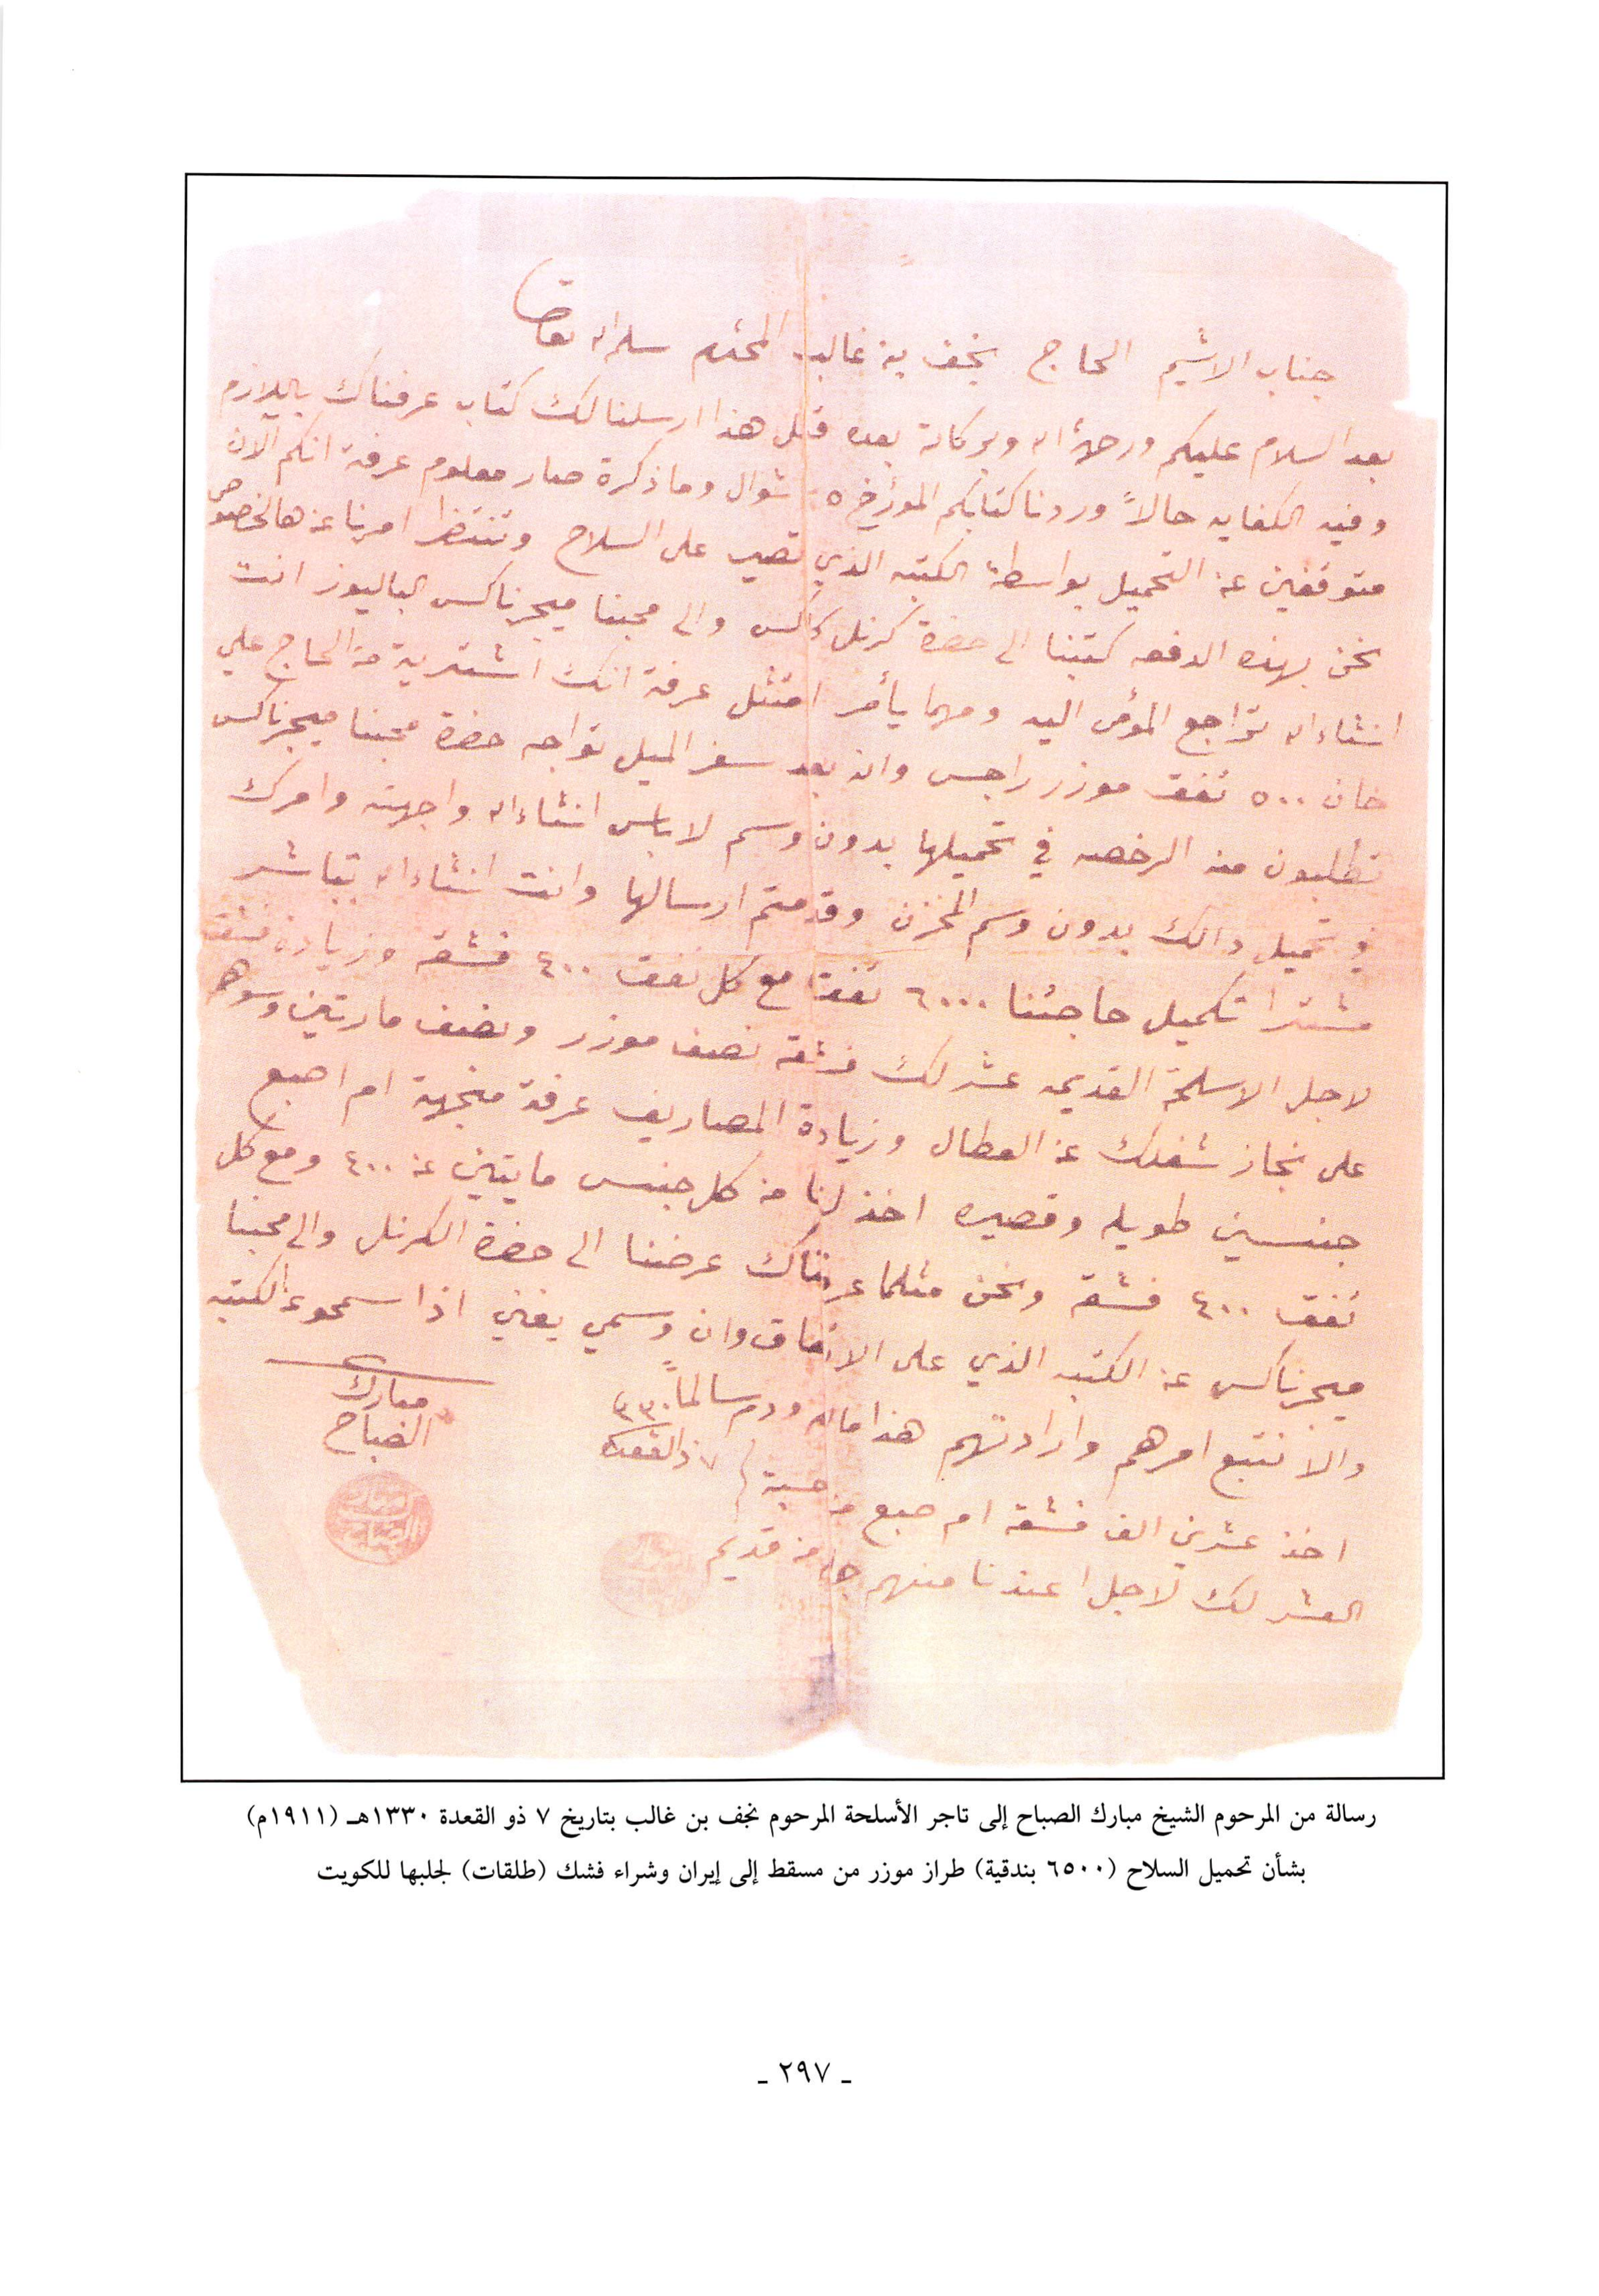 جناب الاشيم الحاج نجف بن غالب المحترم سلمه الله تعالى
بعد السلام عليكم ورحمة الله وبركاته بعده قبل هذا ارسلنا لك كتاب عرفناك باللازم
وفيه الكفايه حالاً وردنا كتابكم المورخ ٥ شوال وما ذكرة صار معلوم عرفة انكم الان
متوقفين عن التحميل بواسطة الكتبه الذي تصير على السلاح وتنتظر امرنا عن هالخصوص
نحن بهذه الدفعه كتبنا الى حضرة كرنل كاكس والى محبنا ميجرناكس الباليوز انت
انشاء الله تراجع المومى اليه ومهما يأمر امتثل عرفة انك اشترية من الحاج علي
خان ٥٠٠ تفق موزر راجس وان بعد سفر الميل تواجه حضرة محبنا ميجرناكس
تطلبون منه الرخصه في تحميلها بدون وسم لا باس انشاء الله واجهته وامرك
في تحميل ذالك بدون وسم المخزن وقدمتم ارسالها وانت انشاء الله تباشر
مشترا تكميل حاجتنا ٦٠٠٠ تفق مع كل تفق ٤٠٠ فشقه وزيادة فشق
لاجل الاسلحة القديمه عشر لك فشقه نصف موزر ونصف مارتين
على نجاز شغلك عن العطال وزيادة المصاريف عرفة منجهة ام اصبع
جنسين طويله وقصيره اخذ لنا من كل جنس مايتين عن ٤٠٠ ومع كل
تفق ٤٠٠ فشقه ونحن مثلما عرفناك عرضنا الى حضرة الكرنل والى محبنا
ميجرناكس عن الكتبه الذي على الاتفاق وان وسمي يغني اذا سمحو عن الكتبه
والا نتبع امرهم وارادتهم هذا مالزم ودم سالماً
٧ ذالقعدة ٣٣٠
مبارك
الصباح
اخذ عشرين الف فشقه ام صبع من حسبة
العشر لك لاجل عندنا منهم من قديم
رسالة من المرحوم الشيخ مبارك الصباح إلى تاجر الأسلحة المرحوم نجف بن غالب بتاريخ ٧ ذو القعدة ١٣٣٠هـ (١٩١١م)
بشأن تحميل السلاح (٦٥٠٠ بندقية) طراز موزر من مسقط إلى إيران وشراء فشك (طلقات) لجلبها للكويت
ـ ٢٩٧ ـ